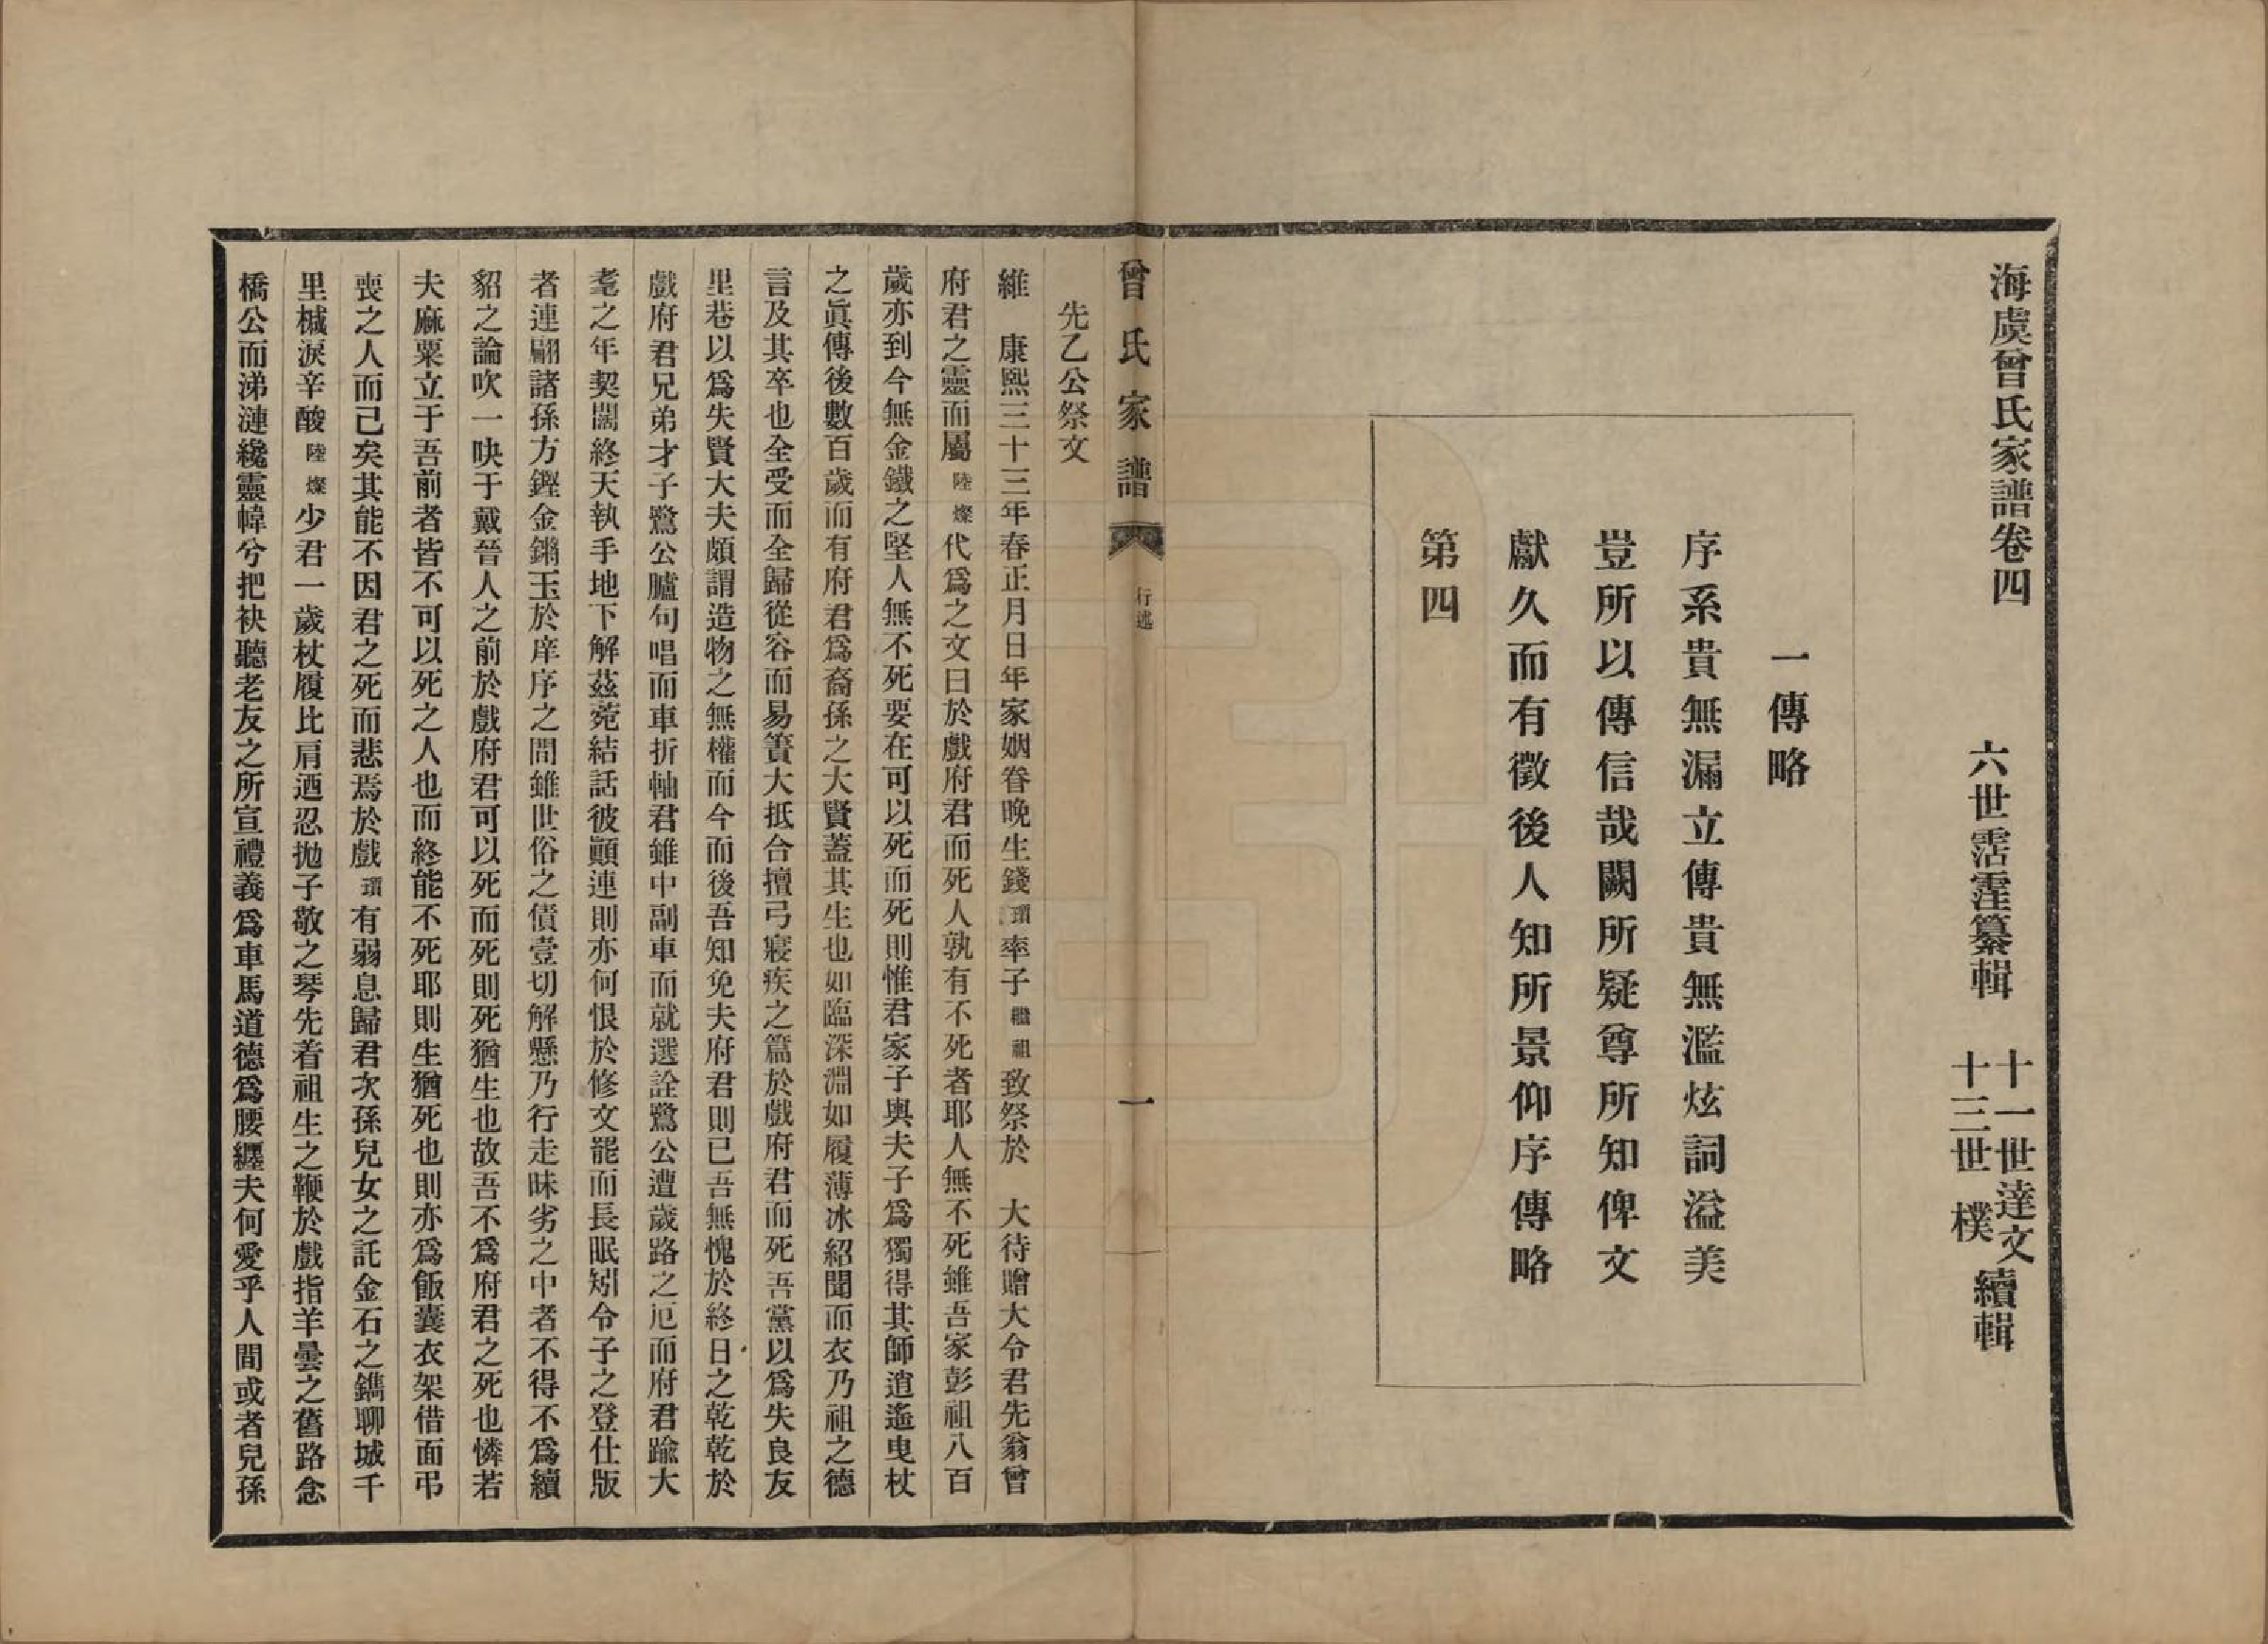 海虞曾氏家譜卷四
六世霑霔纂輯
十一世達文
十三世樸
續輯
一傳略
序系貴無漏立傳貴無濫炫詞溢美
豈所以傳信哉闕所疑尊所知俾文
獻久而有徵後人知所景仰序傳略
第四
曾氏家譜
行述
一
先乙公祭文
維　康熙三十三年春正月日年家姻眷晚生錢瓆率子繼祖致祭於　大待贈大令君先翁曾
府君之靈而屬陸燦代爲之文曰於戲府君而死人孰有不死者耶人無不死雖吾家彭祖八百
歲亦到今無金鐵之堅人無不死要在可以死而死則惟君家子輿夫子爲獨得其師逍遙曳杖
之眞傳後數百歲而有府君爲裔孫之大賢蓋其生也如臨深淵如履薄冰紹聞而衣乃祖之德
言及其卒也全受而全歸從容而易簀大抵合擅弓寢疾之篇於戲府君而死吾黨以爲失良友
里巷以爲失賢大夫頗謂造物之無權而今而後吾知免夫府君則已吾無愧於終日之乾乾於
戲府君兄弟才子鷺公臚句唱而車折軸君雖中副車而就選詮鷺公遭歲路之厄而府君踰大
耄之年契闊終天執手地下解茲菀結話彼顚連則亦何恨於修文罷而長眠矧令子之登仕版
者連翩諸孫方鏗金鏘玉於庠序之間雖世俗之債壹切解懸乃行走昧劣之中者不得不爲續
貂之論吹一吷于戴晉人之前於戲府君可以死而死則死猶生也故吾不爲府君之死也憐若
夫麻粟立于吾前者皆不可以死之人也而終能不死耶則生猶死也則亦爲飯囊衣架借面弔
喪之人而已矣其能不因君之死而悲焉於戲瓆有弱息歸君次孫兒女之託金石之鐫聊城千
里椷淚辛酸陸燦少君一歲杖履比肩迺忍拋子敬之琴先着祖生之鞭於戲指羊曇之舊路念
橋公而涕漣纔靈幃兮把袂聽老友之所宣禮義爲車馬道德爲腰纏夫何愛乎人間或者兒孫